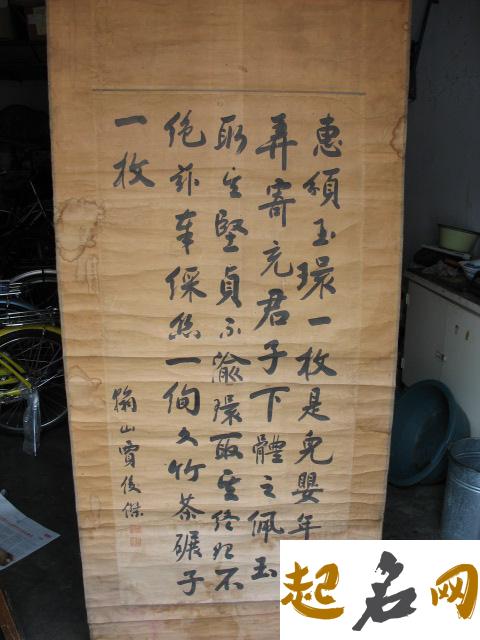 惠玉環一枚是兒嬰年
弄寄充君子下體之佩玉
取其堅貞不渝環取其終始不
絕茲奉綵絲一絇文竹茶碾子
一枚
山賈俊傑
起名网